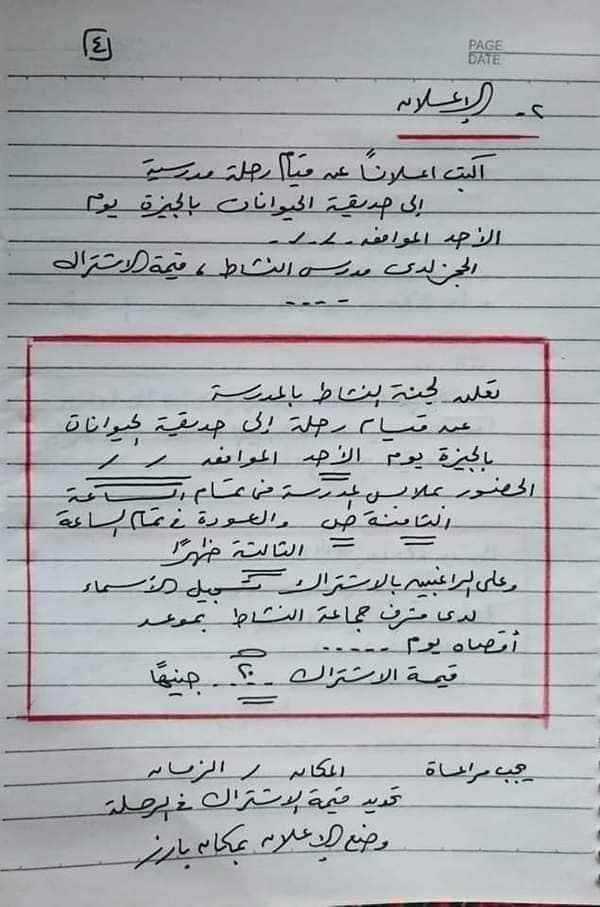 ٤
PAGE
DATE
٢- الإعلان
اكتب اعلاناً عن قيام رحلة مدرسية
إلى حديقة الحيوانات بالجيزة يوم
الأحد الموافق ../../..
الحجز لدى مدرس النشاط ، قيمة الاشتراك
....
تعلن لجنة النشاط بالمدرسة
عن قيام رحلة إلى حديقة الحيوانات
بالجيزة يوم الأحد الموافق / /
الحضور بملابس المدرسة فى تمام الساعة
الثامنة ص والعودة فى تمام الساعة
الثالثة ظهرًا
وعلى الراغبين بالاشتراك تسجيل الأسماء
لدى مشرف جماعة النشاط بموعد
أقصاه يوم .....
قيمة الاشتراك ..٢٠.. جنيهًا
يجب مراعاة المكان / الزمان
تحديد قيمة الاشتراك فى الرحلة
وضع الإعلان بمكان بارز